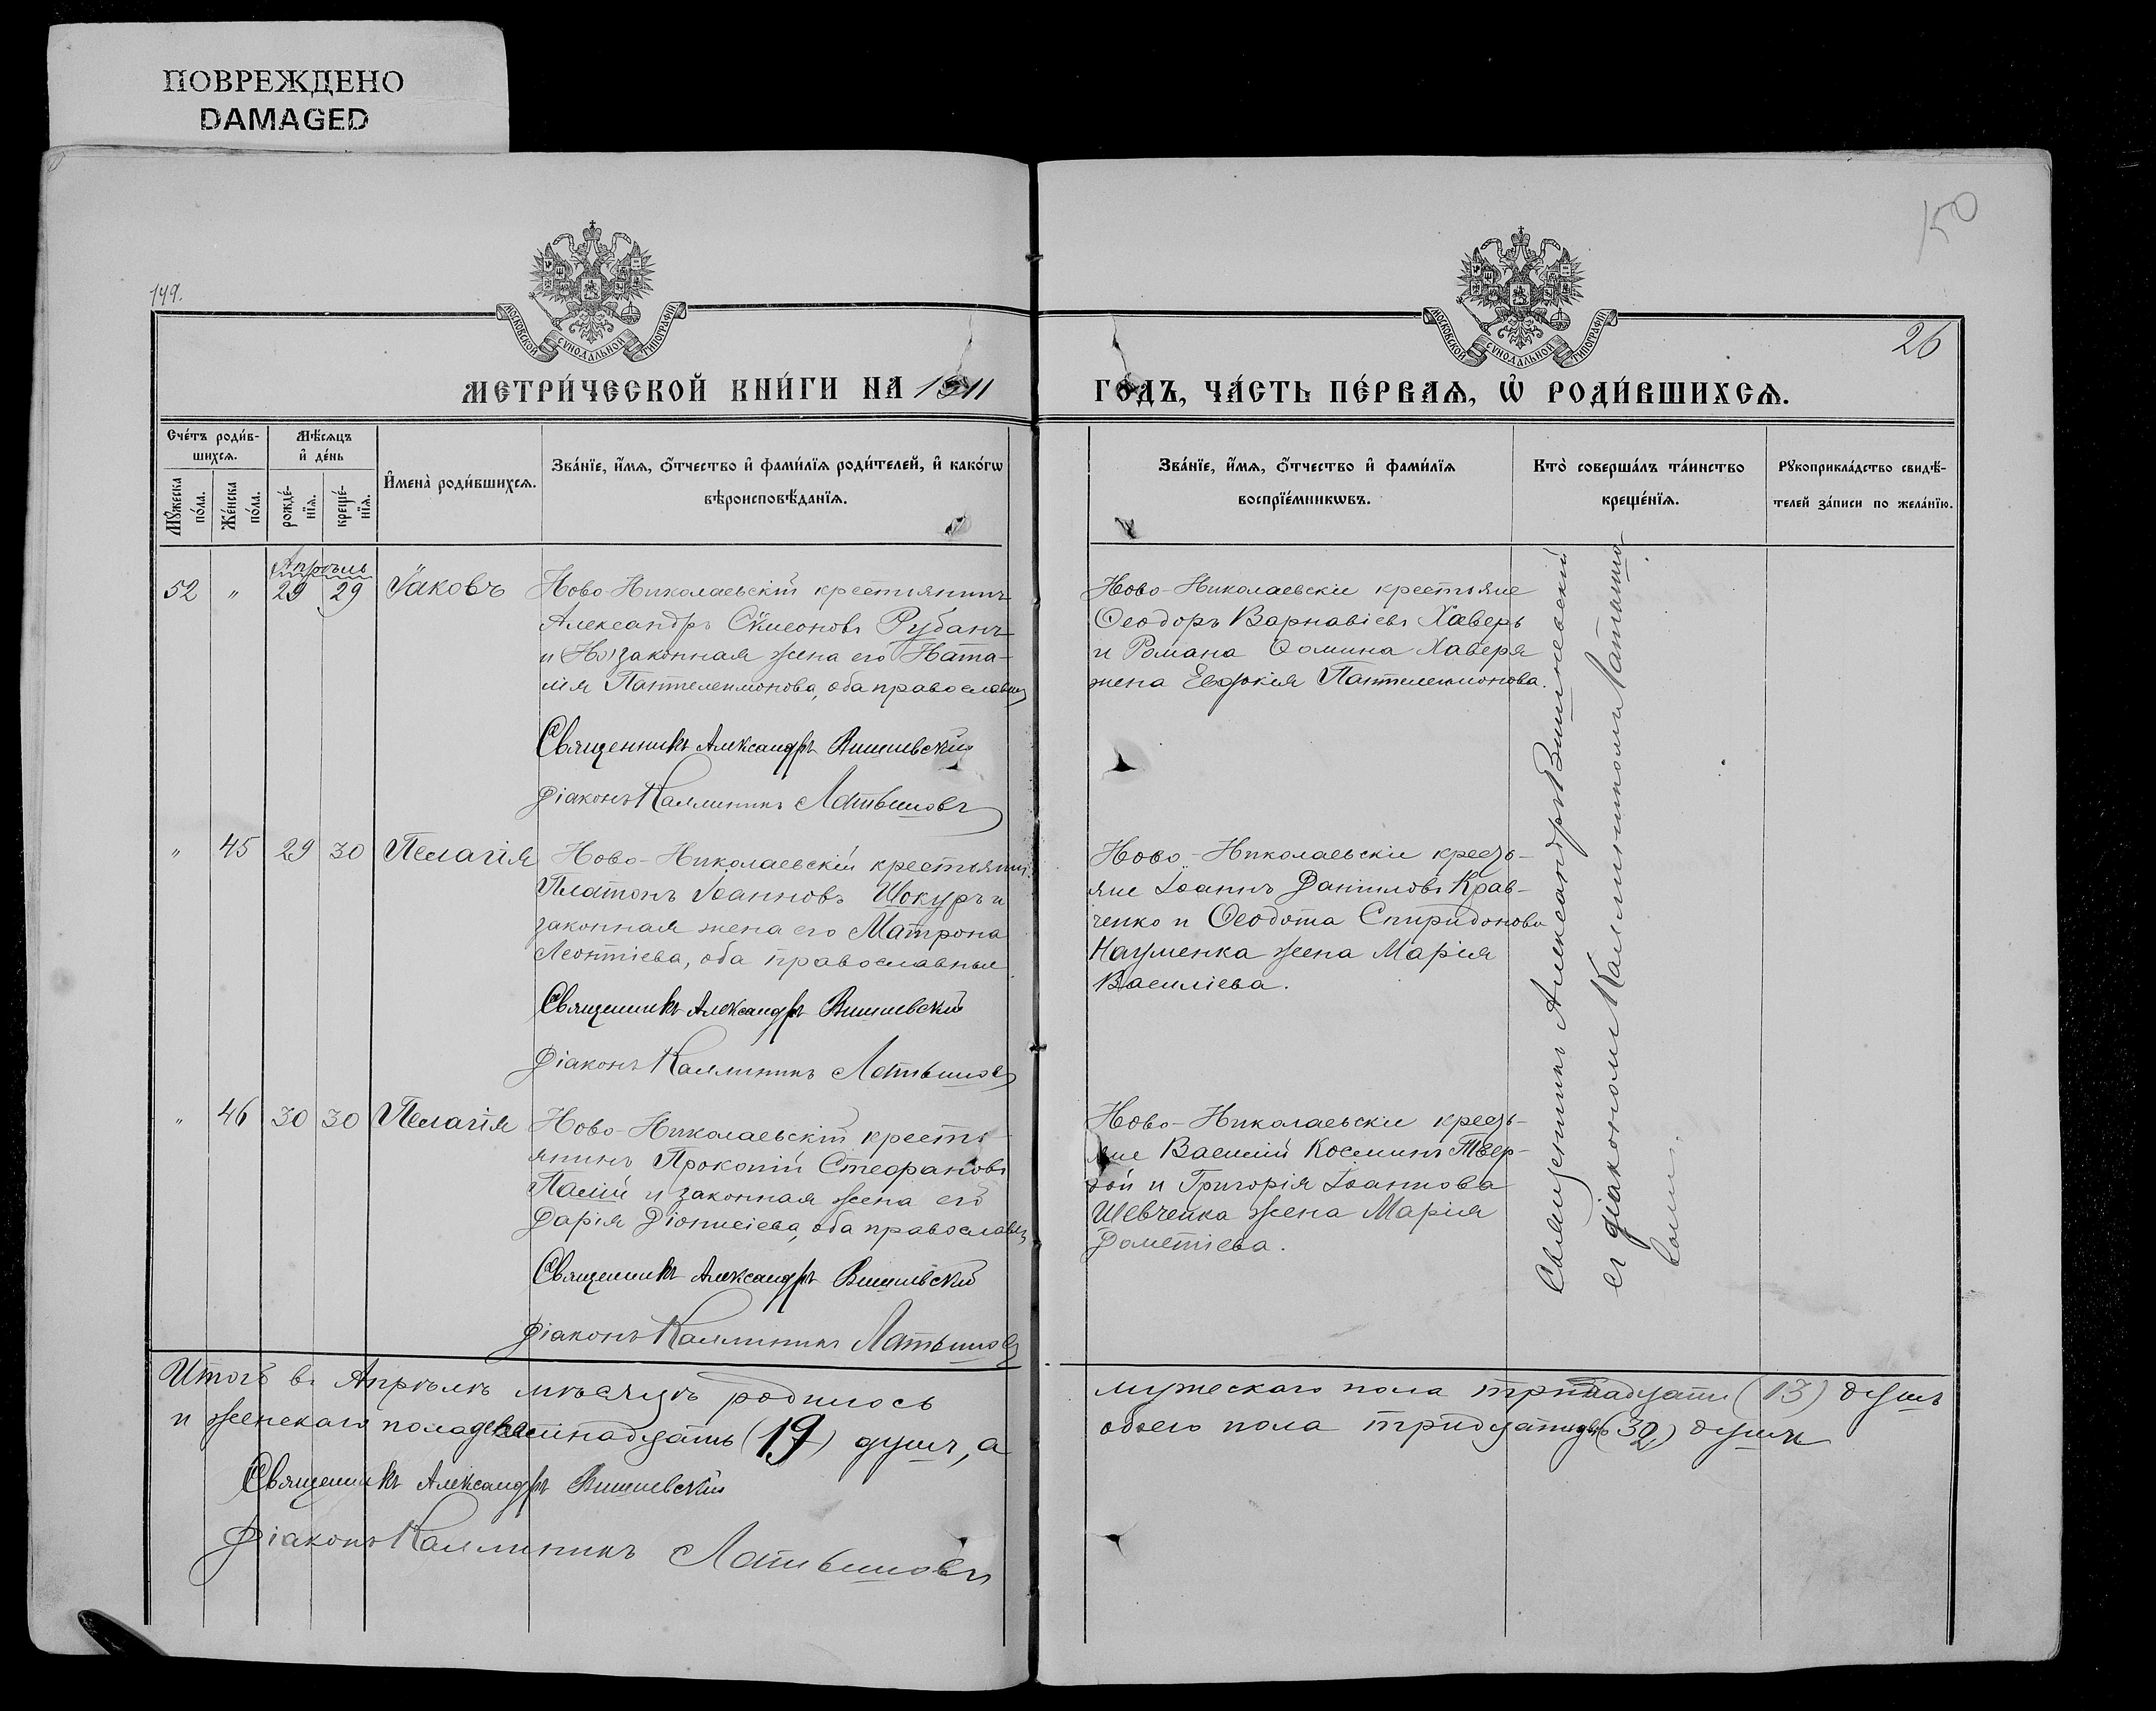 ПОВРЕЖДЕНО
DAMAGED
149.
150
26
МОСКОВСКОЙ СУНОДАЛЬНОЙ ТИПОГРАФІИ
МОСКОВСКОЙ СУНОДАЛЬНОЙ ТИПОГРАФІИ
МЕТРИ́ЧЕСКОЙ КНИ́ГИ НА 1911
ГО́ДЪ, ЧА́СТЬ ПЕ́РВАѦ, Ѡ҆ РОДИ́ВШИХСѦ.
Сче́тъ роди́в-
шихсѧ.
Мꙋ́жеска по́ла.
Же́нска по́ла.
Мѣ́сѧцъ
и҆ де́нь
рожде́-
нїѧ.
креще́-
нїѧ.
И҆мена̀ роди́вшихсѧ.
Зва́нїе, и҆́мѧ, ѻ҆́тчество и҆ фами́лїѧ роди́телей, и҆ како́гѡ
вѣроисповѣ́данїѧ.
Зва́нїе, и҆́мѧ, ѻ҆́тчество и҆ фами́лїѧ
воспрїе́мникѡвъ.
Кто̀ соверша́лъ та́инство
креще́нїѧ.
Рꙋкоприкла́дство свидѣ́-
телей за́писи по жела́нїю.
Апрѣль
52 " 29 29 Іаковъ
Ново-Николаевскій крестьянинъ
Александръ Сѵмеоновъ Рубанъ
и законная жена его Ната-
лія Пантелеимонова, оба православны
Священникъ Александръ Вишневскій
Діаконъ Каллиникъ Латышовъ
Ново-Николаевскіе крестьяне
Ѳеодоръ Варнавіевъ Хаверь
и Романа Ѳомина Хаверя
жена Евдокія Пантелеимонова.
" 45 29 30 Пелагія
Ново-Николаевскій крестьянин.
Платонъ Іоанновъ Шокуръ и
законная жена его Матрона
Леонтіева, оба православные.
Священникъ Александръ Вишневскій
Діаконъ Каллиникъ Латышовъ
Ново-Николаевскіе кресть-
яне Іоаннъ Даниловъ Крав-
ченко и Ѳеодота Спиридонова
Науменка жена Марія
Василіева.
" 46 30 30 Пелагія
Ново-Николаевскій кресть-
янинъ Прокопій Стефановъ
Палій и законная жена его
Дарія Діонисіева, оба православн
Священникъ Александръ Вишневскій
Діаконъ Каллиникъ Латышовъ
Ново-Николаевскіе кресть-
яне Василій Косминъ Твер-
дой и Григорія Іоаннова
Шевченка жена Марія
Дометіева.
Священникъ Александръ Вишневскій
съ діакономъ Каллиникомъ Латышо-
вымъ.
Итогъ въ Апрѣлѣ мѣсяцѣ родилось
мужескаго пола тринадцать (13) душъ
и женскаго пола девятнадцать (19) душъ, а
обоего пола тридцать двѣ (32) души
Священникъ Александръ Вишневскій
Діаконъ Каллиникъ Латышовъ